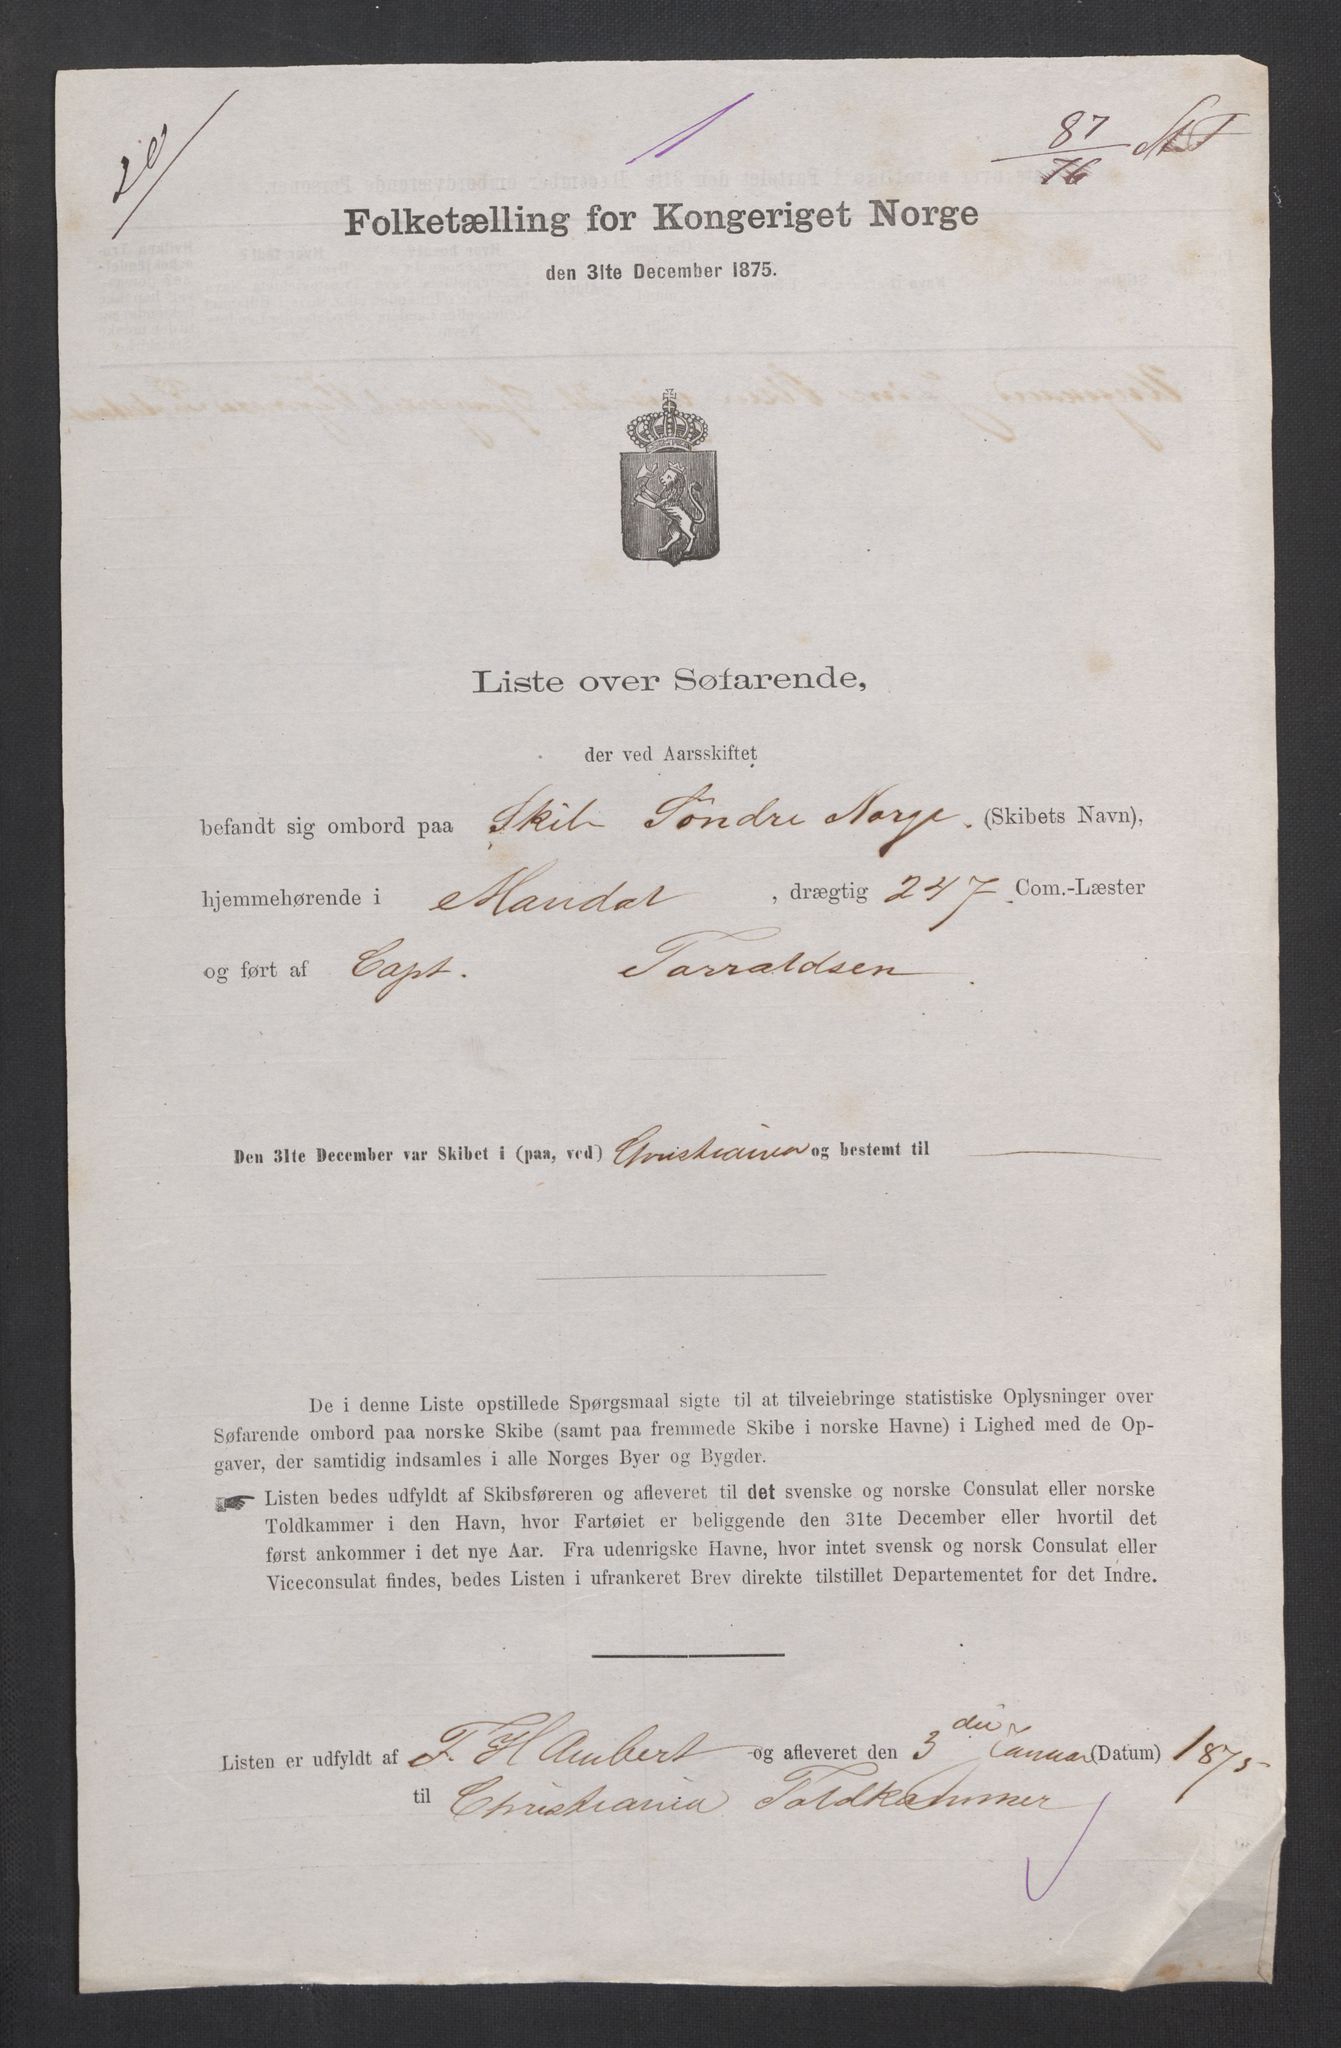 20
1
87
76
Folketælling for Kongeriget Norge
den 31te December 1875.
Liste over Søfarende,
der ved Aarsskiftet
befandt sig ombord paa Skib Söndre Norge. (Skibets Navn),
hjemmehørende i Mandal, drægtig 247 Com.-Læster
og ført af Capt. Tarraldsen
Den 31te December var Skibet i (paa, ved) Christiania og bestemt til
De i denne Liste opstillede Spørgsmaal sigte til at tilveiebringe statistiske Oplysninger over
Søfarende ombord paa norske Skibe (samt paa fremmede Skibe i norske Havne) i Lighed med de Op-
gaver, der samtidig indsamles i alle Norges Byer og Bygder.
☛ Listen bedes udfyldt af Skibsføreren og afleveret til det svenske og norske Consulat eller norske
Toldkammer i den Havn, hvor Fartøiet er beliggende den 31te December eller hvortil det
først ankommer i det nye Aar. Fra udenrigske Havne, hvor intet svensk og norsk Consulat eller
Viceconsulat findes, bedes Listen i ufrankeret Brev direkte tilstillet Departementet for det Indre.
Listen er udfyldt af F. H Aubert og afleveret den 3 Januar (Datum) 1875
til Christiania Toldkammer